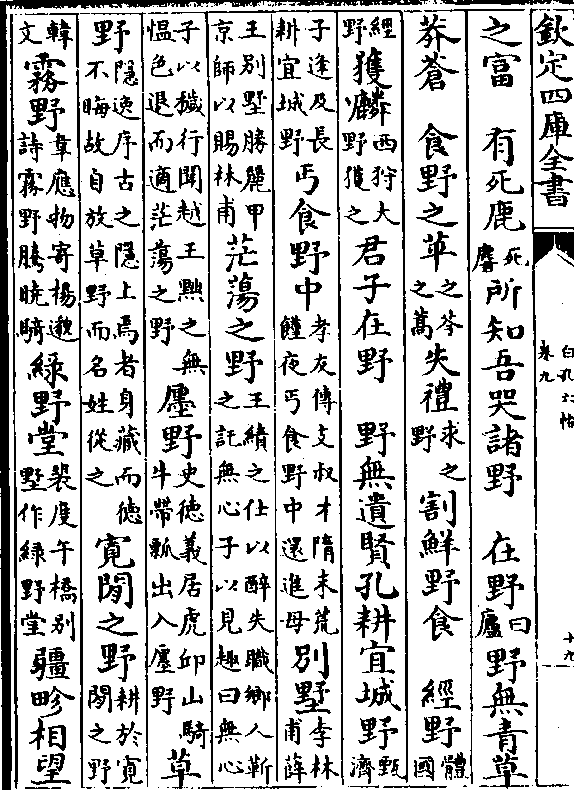 欽定四庫全書
白孔六帖
卷九
十九
之富　有死鹿死麕所知吾哭諸野　在野曰廬野無青草
莽蒼　食野之苹之芩之蒿失禮求之野割鮮野食　經野體國
經野獲麟西狩大野獲之君子在野　野無遺賢孔耕宜城野甄濟
子逢及長耕宜城野丐食野中孝友傳支叔才隋末荒饉夜丐食野中還進母別墅李林甫薛
王別墅勝麗甲京師以賜林甫茫蕩之野王績之仕以醉失職鄉人靳之託無心子以見趣曰無心
子以穢行聞越王黜之無愠色退而適茫蕩之野廛野史德義居虎邱山騎牛帶瓢出入廛野草
野隱逸序古之隱上焉者身藏而德不晦故自放草野而名姓從之寛閒之野耕於寛閒之野
韓文霧野韋應物寄楊邀詩霧野騰曉騎綠野堂裴度午橋別墅作綠野堂疆畛相望